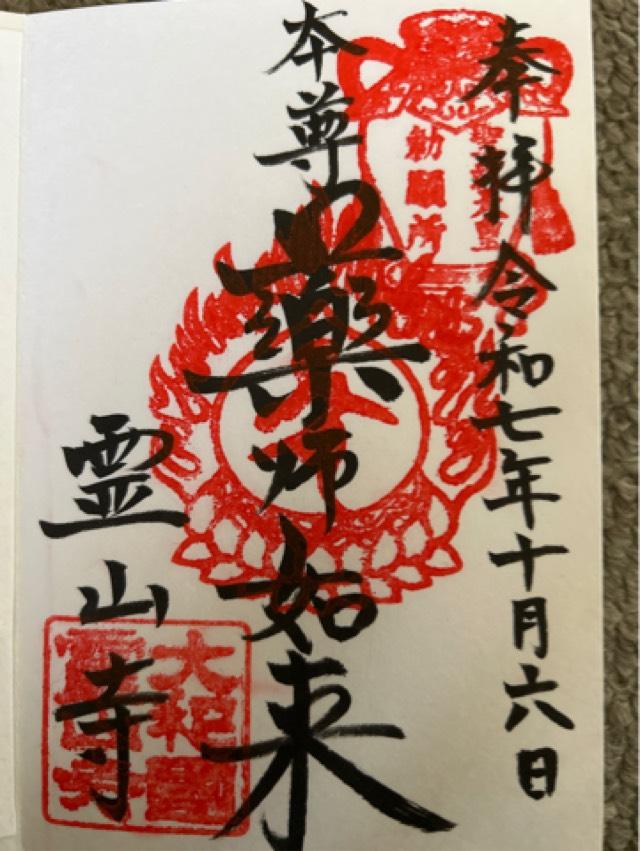 奉拝 令和七年十月六日
勅願所
本尊 藥師如来
霊山寺
大和國